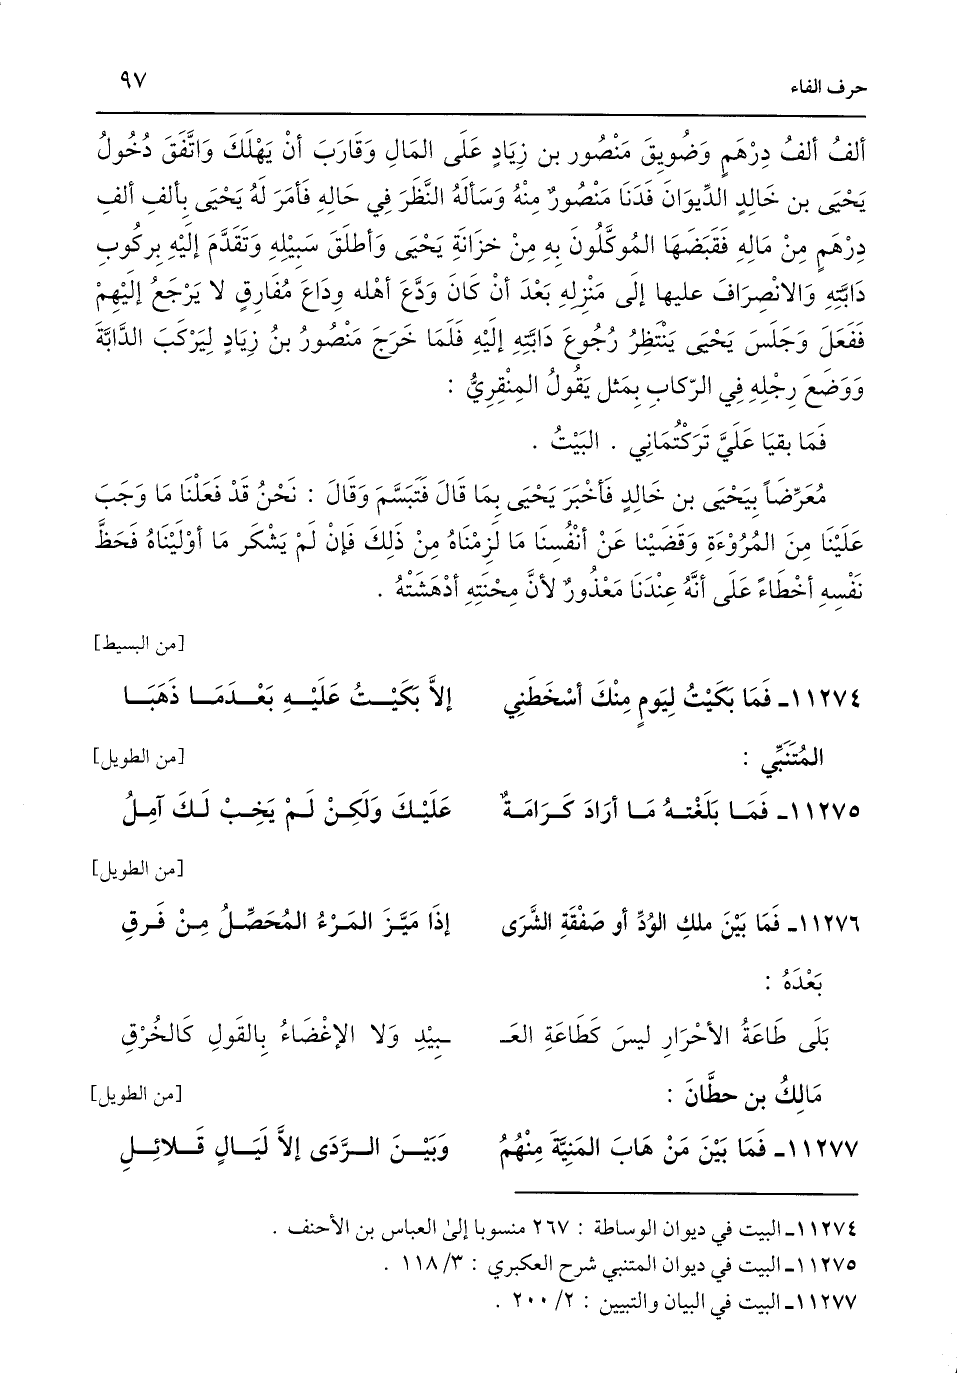 حرف الفاء ٩٧
ألفُ ألفُ دِرْهَمٍ وَضُويِقَ مَنْصُور بن زِيَادٍ عَلَى المَالِ وَقَارَبَ أنْ يَهْلَكَ وَاتَّفَقَ دُخُولُ
يَحْيَى بن خَالِدٍ الدِّيوَانَ فَدَنَا مَنْصُورٌ مِنْهُ وَسَألَهُ النَّظَرَ فِي حَالِهِ فَأمَرَ لَهُ يَحْيَى بِألفِ ألفِ
دِرْهَمٍ مِنْ مَالِهِ فَقَبَضَهَا المُوكَّلُونَ بِهِ مِنْ خزَانَةِ يَحْيَى وَأطلَقَ سَبِيْلِهِ وَتَقَدَّمَ إلَيْهِ بِركُوبِ
دَابَّتِهِ وَالانْصِرَافَ عليها إلَى مَنْزِلِهِ بَعْدَ أنْ كَانَ وَدَّعَ أهْله ودِاعَ مُفَارِقٍ لا يَرْجَعُ إلَيْهِمْ
فَفَعَلَ وَجَلَسَ يَحْيَى يَنْتَظِرُ رُجُوعَ دَابَّتِهِ إلَيْهِ فَلَمَا خَرَجَ مَنْصُورُ بنُ زِيَادٍ لِيَرْكَبَ الدَّابَّةَ
وَوَضَعَ رِجْلِهِ فِي الرّكابِ بِمَثل يَقُولُ المِنْقِرِيُّ :
فَمَا بقيَا عَلَيَّ تَرَكْتُمَانِي . البَيْتُ .
مُعَرِّضَاً بِيَحْيَى بن خَالِدٍ فَأخْبَرَ يَحْيَى بِمَا قَالَ فَتَبَسَّمَ وَقَالَ : نَحْنُ قَدْ فَعَلْنَا مَا وَجَبَ
عَلَيْنَا مِنَ المُرُوْءَةِ وَقَضَيْنا عَنْ أنْفُسِنَا مَا لَزِمْنَاهُ مِنْ ذَلِكَ فَإنْ لَمْ يَشْكَر مَا أوْلَيْنَاهُ فَحَظَّ
نَفْسِهِ أخْطَاءً عَلَى أنَّهُ عِنْدَنَا مَعْذُورٌ لأنَّ مِحْنَتِهِ أدْهَشَتْهُ .
[من البسيط]
١١٢٧٤ـ فَمَا بَكَيْتُ لِيَومٍ مِنْكَ أسْخَطَنِي إلاَّ بَكَيْـتُ عَلَيْـهِ بَعْـدَمَـا ذَهَبَـا
المُتَنَبِّي : [من الطويل]
١١٢٧٥ـ فَمَـا بَلَغْتـهُ مَـا أرَادَ كَـرَامَـةٌ عَلَيْـكَ وَلَكِـنْ لَـمْ يَخِـبْ لَـكَ آمِـلُ
[من الطويل]
١١٢٧٦ـ فَمَا بَيْنَ ملكِ الوُدِّ أو صَفْقَةِ الشَّرَى إذَا مَيَّـزَ المَـرْءُ المُحَصِّـلُ مِـنْ فَـرقِ
بَعْدَهُ :
بَلَى طَاعَةُ الأحْرَارِ ليسَ كَطَاعَةِ العَـ ـبِيْدِ وَلا الإغْضَاءُ بِالقَولِ كَالخُرْقِ
مَالِكُ بن حطَّانَ : [من الطويل]
١١٢٧٧ـ فَمَا بَيْنَ مَنْ هَابَ المَنِيَّةَ مِنْهُمُ وَبَيْـنَ الـرَّدَى إلاَّ لَيَـالٍ قَـلائِـلِ
١١٢٧٤ـ البيت في ديوان الوساطة : ٢٦٧ منسوبا إلى العباس بن الأحنف .
١١٢٧٥ـ البيت في ديوان المتنبي شرح العكبري : ٣/ ١١٨ .
١١٢٧٧ـ البيت في البيان والتبيين : ٢/ ٢٠٠ .